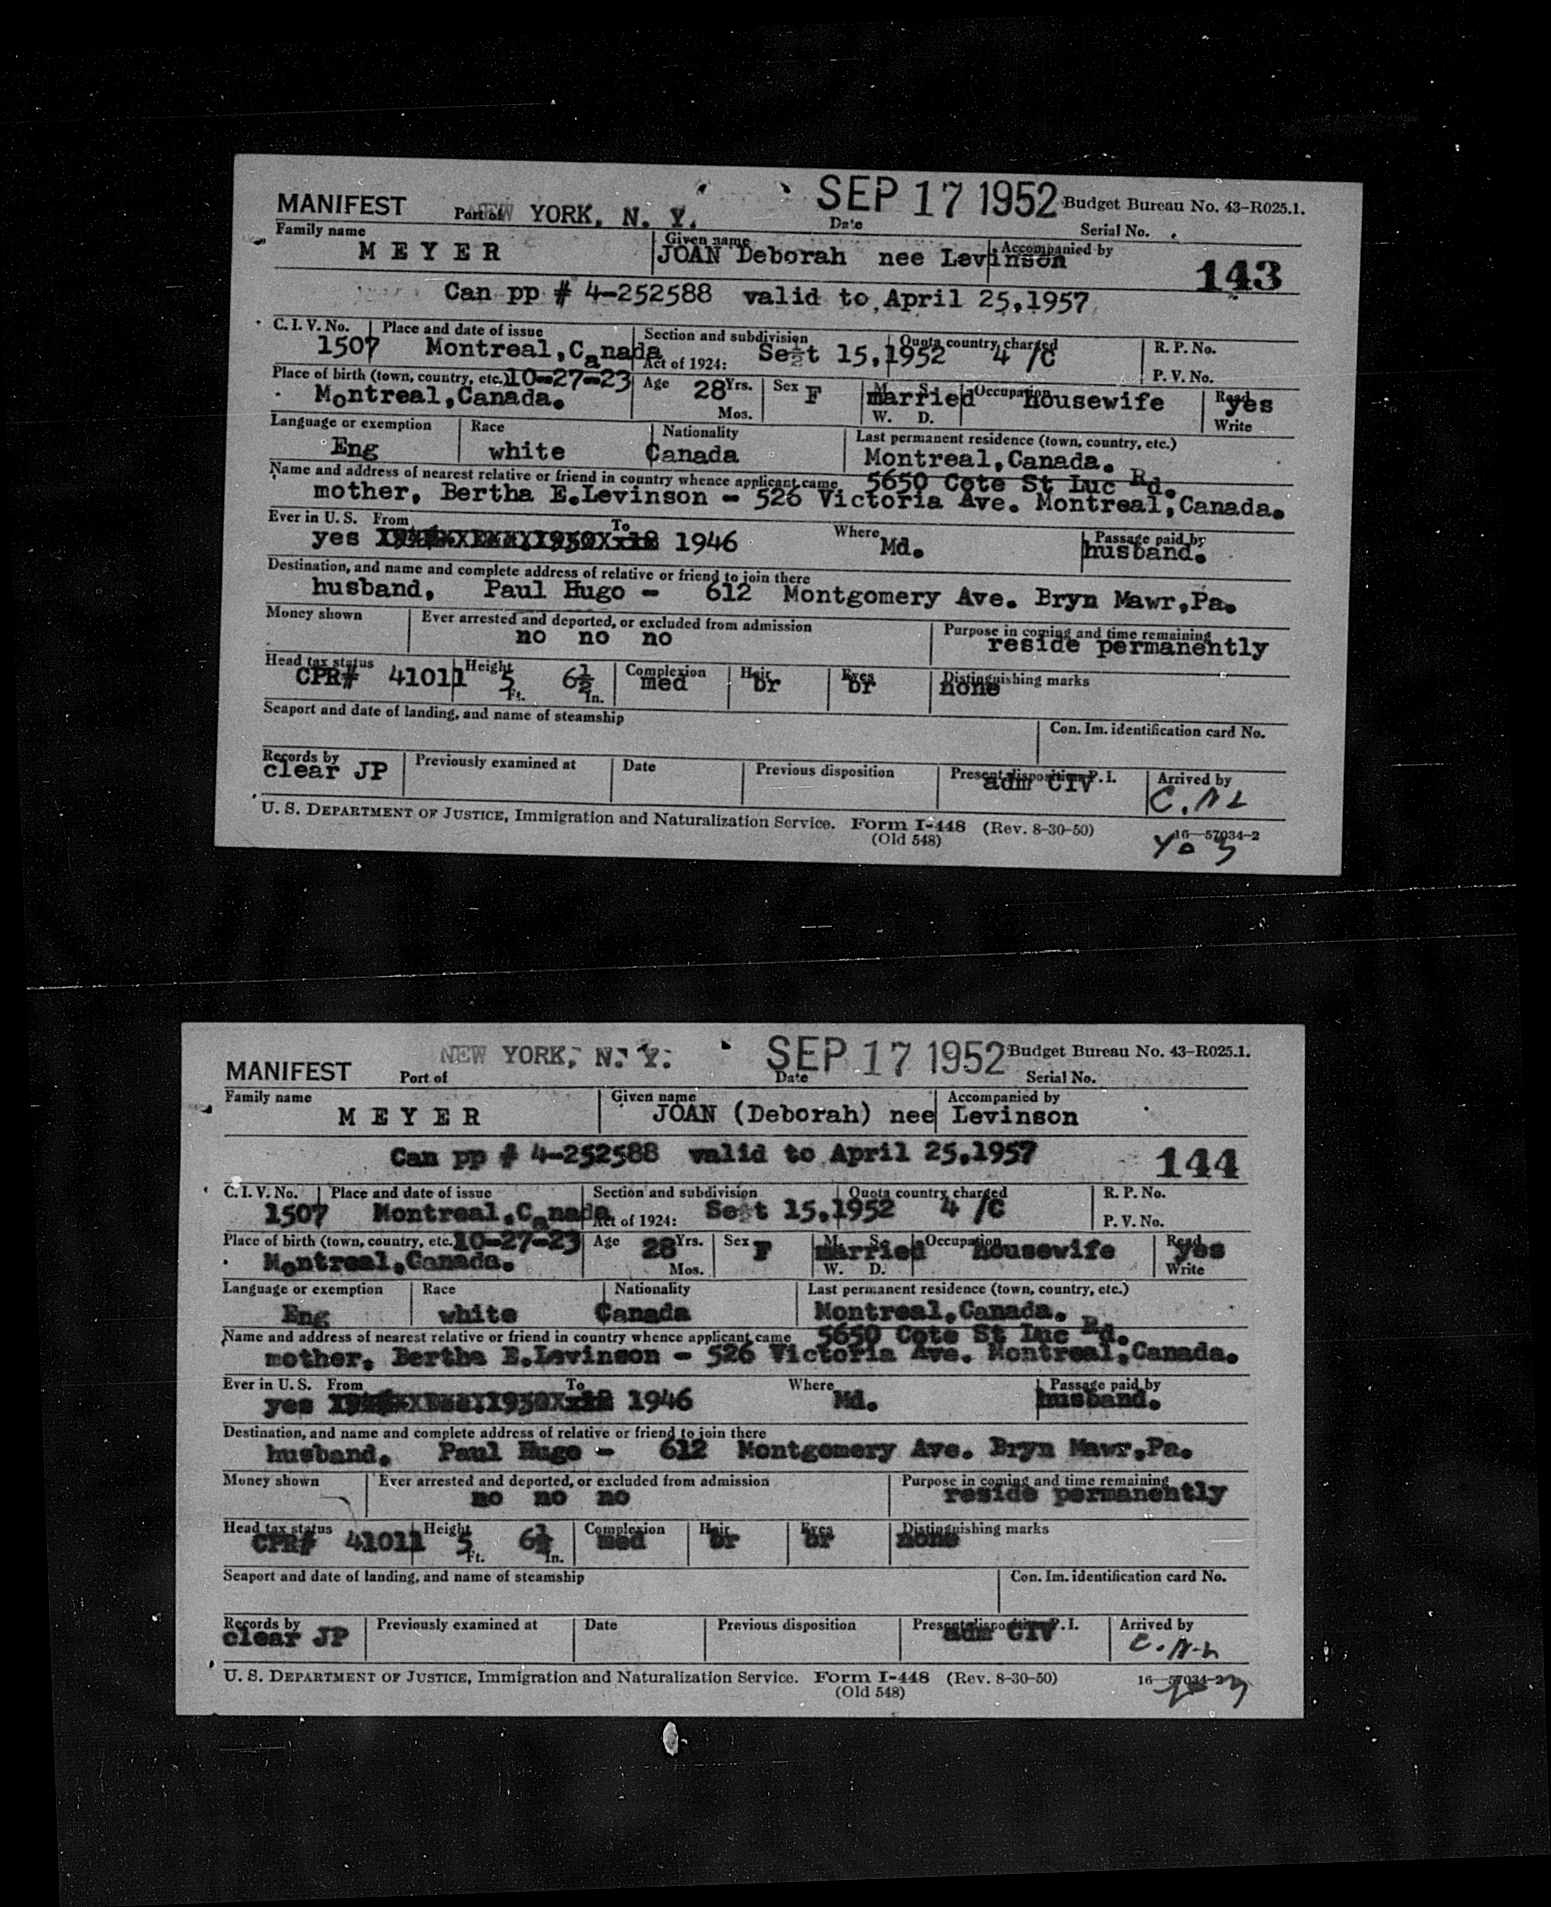 MANIFEST Port of NEW YORK, N. Y. SEP 17 1952 Date Budget Bureau No. 43-R025.1.
Serial No.
Family name Given name Accompanied by
M E Y E R JOAN Deborah nee Levinson
143
Can pp # 4-252588 valid to April 25,1957
C. I. V. No. Place and date of issue Section and subdivision Quota country charged R. P. No.
1507 Montreal,Canada Act of 1924: Sept 15,1952 4 /C
P. V. No.
Place of birth (town, country, etc.) 10-27-23 Age 28 Yrs. Sex F M. S. married Occupation housewife Read yes
Montreal,Canada. Mos. W. D. Write
Language or exemption Race Nationality Last permanent residence (town, country, etc.)
Eng white Canada Montreal,Canada.
Name and address of nearest relative or friend in country whence applicant came 5650 Cote St Luc Rd.
mother, Bertha E.Levinson - 526 Victoria Ave. Montreal,Canada.
Ever in U. S. From To Where Passage paid by
yes 1946 Md. husband.
Destination, and name and complete address of relative or friend to join there
husband, Paul Hugo - 612 Montgomery Ave. Bryn Mawr,Pa.
Money shown Ever arrested and deported, or excluded from admission Purpose in coming and time remaining
no no no reside permanently
Head tax status Height Complexion Hair Eyes Distinguishing marks
CPR# 41011 5 Ft. 6½ In. med br br none
Seaport and date of landing, and name of steamship Con. Im. identification card No.
Records by Previously examined at Date Previous disposition Present disposition P. I. Arrived by
clear JP adm CIV
U. S. DEPARTMENT OF JUSTICE, Immigration and Naturalization Service. Form I-448 (Rev. 8-30-50) 16—57034-2
(Old 548)
NEW YORK, N. Y. SEP 17 1952 Budget Bureau No. 43-R025.1.
MANIFEST Port of Date Serial No.
Family name Given name Accompanied by
M E Y E R JOAN (Deborah) nee Levinson
Can pp # 4-252588 valid to April 25,1957 144
C. I. V. No. Place and date of issue Section and subdivision Quota country charged R. P. No.
1507 Montreal,Canada Act of 1924: Sept 15,1952 4 /C
P. V. No.
Place of birth (town, country, etc.) 10-27-23 Age 28 Yrs. Sex F M. S. married Occupation housewife Read yes
Montreal,Canada. Mos. W. D. Write
Language or exemption Race Nationality Last permanent residence (town, country, etc.)
Eng white Canada Montreal,Canada.
Name and address of nearest relative or friend in country whence applicant came 5650 Cote St Luc Rd.
mother, Bertha E.Levinson - 526 Victoria Ave. Montreal,Canada.
Ever in U. S. From To Where Passage paid by
yes 1946 Md. husband.
Destination, and name and complete address of relative or friend to join there
husband, Paul Hugo - 612 Montgomery Ave. Bryn Mawr,Pa.
Money shown Ever arrested and deported, or excluded from admission Purpose in coming and time remaining
no no no reside permanently
Head tax status Height Complexion Hair Eyes Distinguishing marks
CPR# 41011 5 Ft. 6½ In. med br br none
Seaport and date of landing, and name of steamship Con. Im. identification card No.
Records by Previously examined at Date Previous disposition Present disposition P. I. Arrived by
clear JP adm CIV
U. S. DEPARTMENT OF JUSTICE, Immigration and Naturalization Service. Form I-448 (Rev. 8-30-50) 16—57034-2
(Old 548)